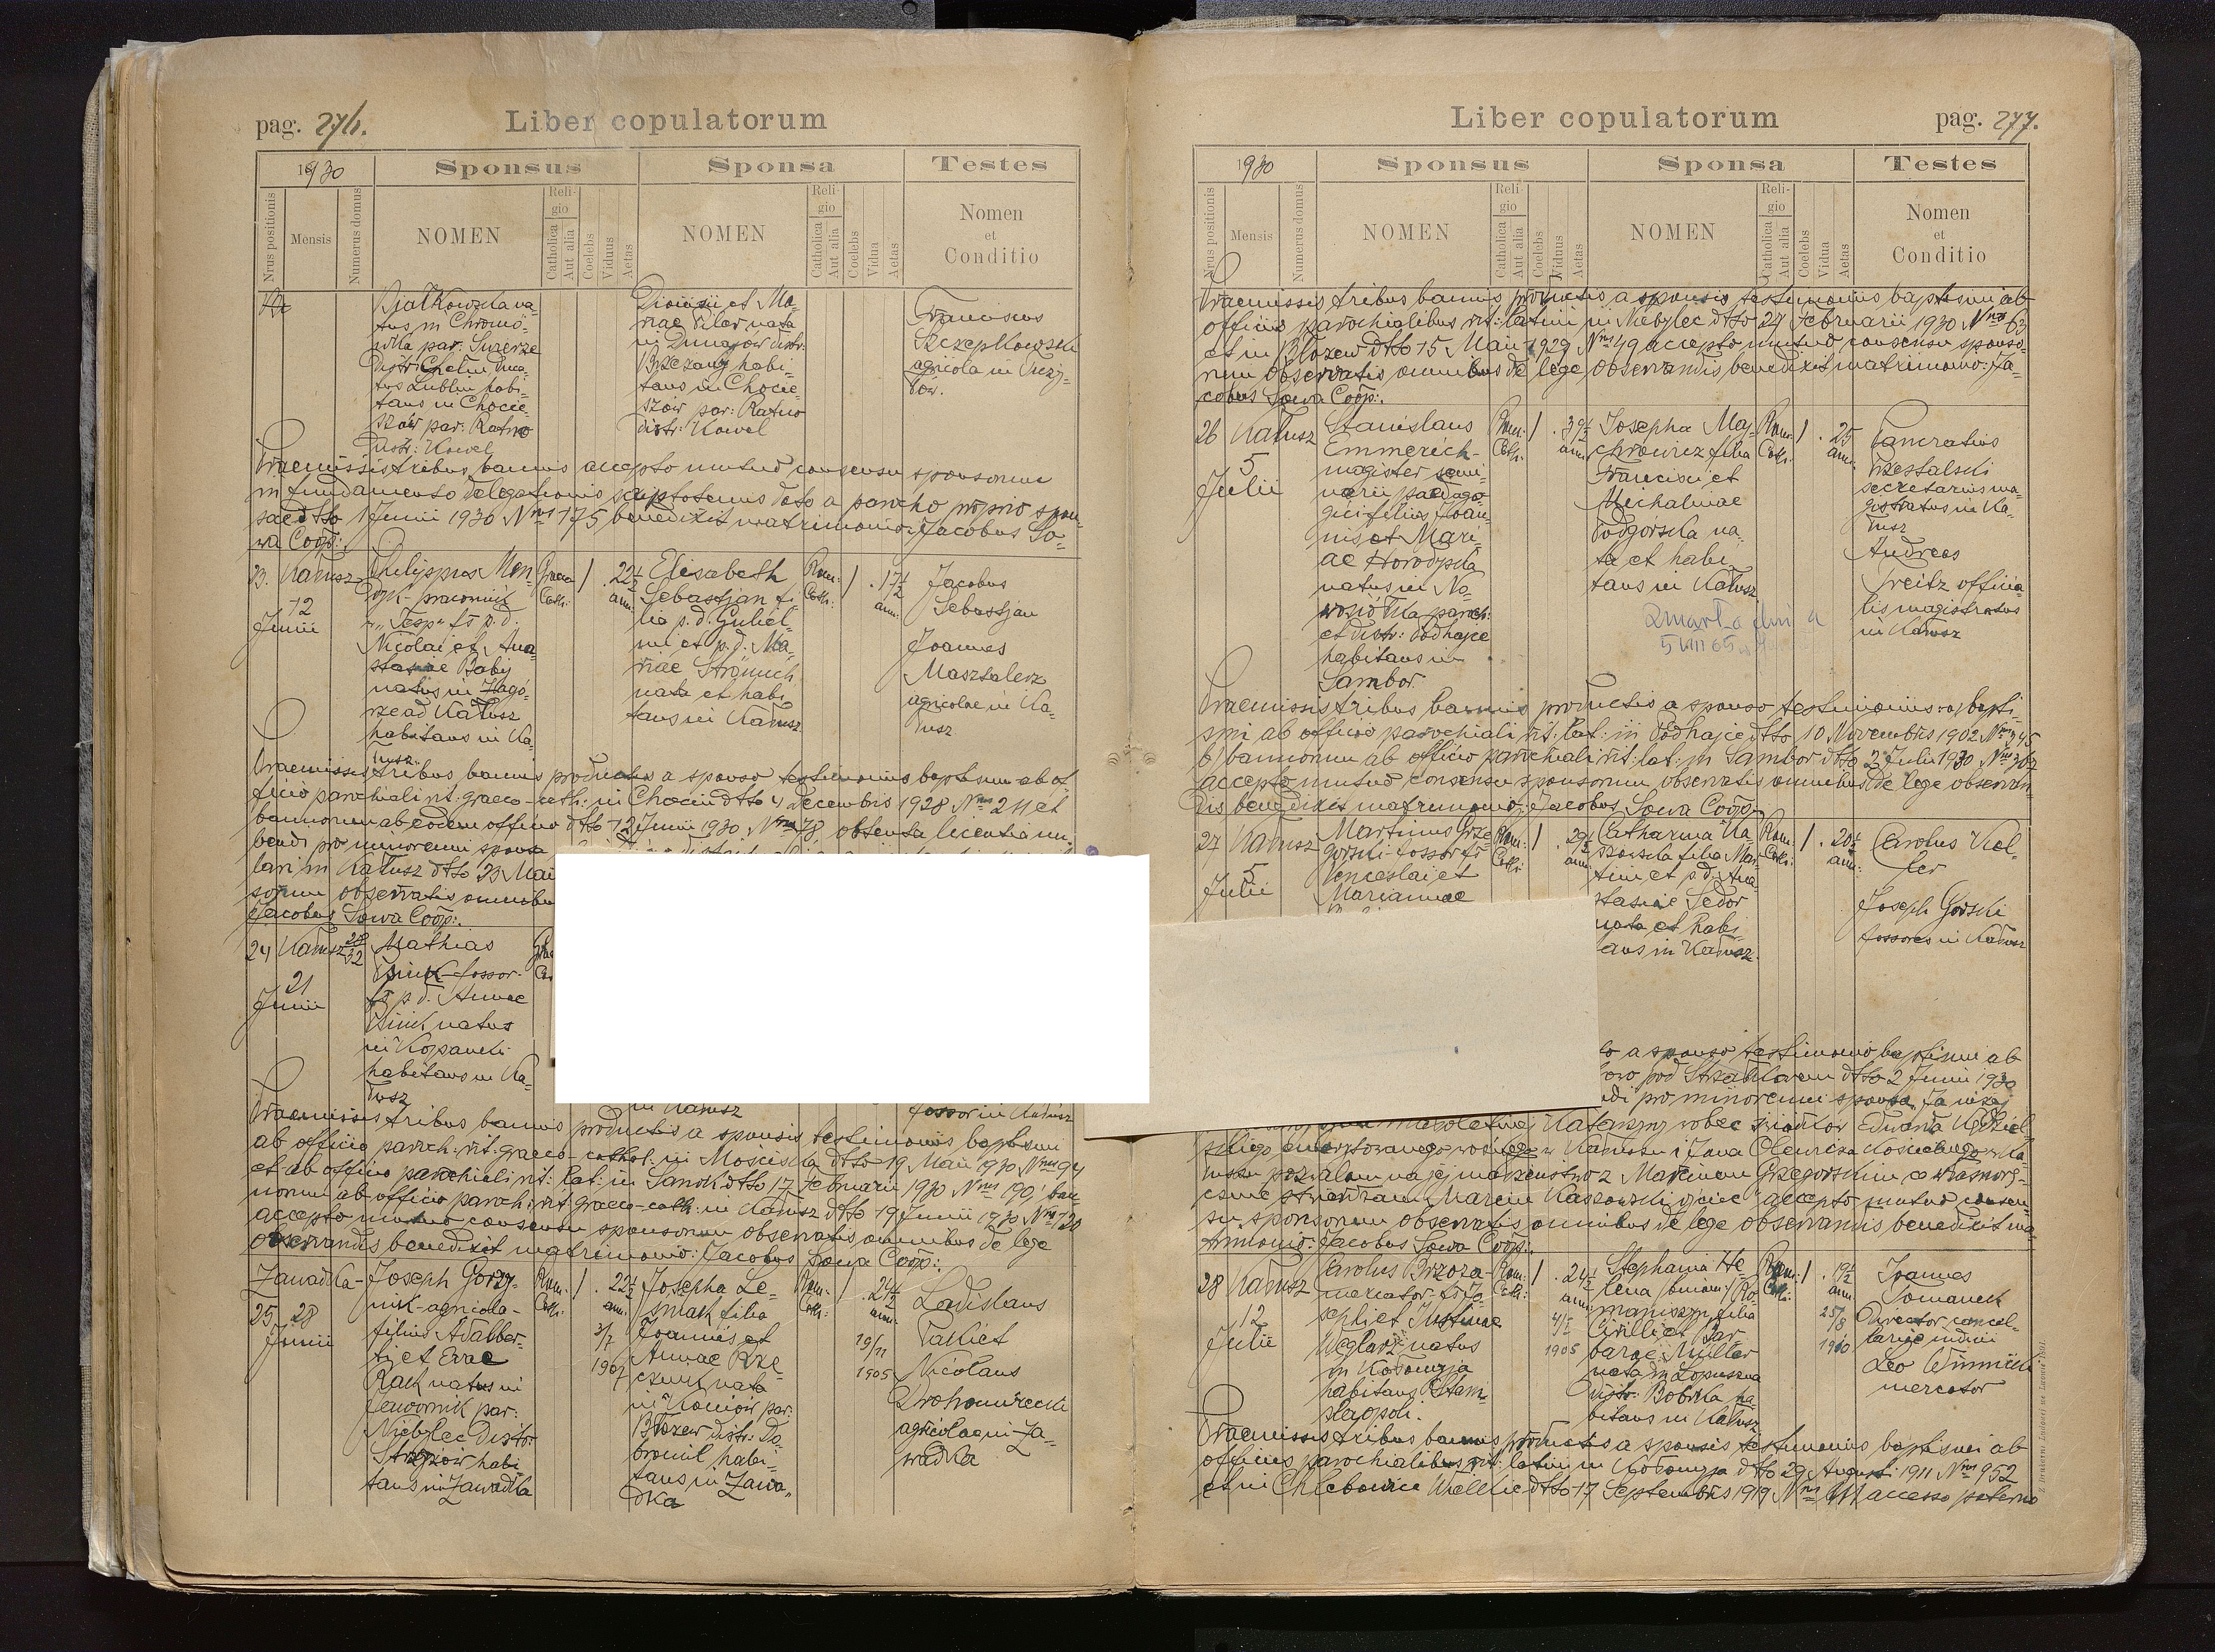 pag. 276.
Liber copulatorum
1930
Sponsus
Sponsa
Testes
Nrus positionis
Mensis
Numerus domus
NOMEN
Reli-
gio
Catholica
Aut alia
Coelebs
Viduus
Aetas
NOMEN
Reli-
gio
Catholica
Aut alia
Coelebs
Vidua
Aetas
Nomen
et
Conditio
tus in
par: Suzerze
distr: Chełm
tus Lublin habi-
tans in Chocie-
szów par: Ratno
distr: Kowel
Dionisii et Ma-
riae nata
in Dunajów distr:
Brzezany habi-
tans in Chocie-
szów par: Ratno
distr: Kowel
Franciscus
Szczepkowski
agricola in
Praemissis tribus bannis accepto mutuo consensu sponsorum
in fundamento delegationis dato a parocho proprio spon-
sae dtto 1 Junii 1930 Nrus 175 benedixit matrimonio: Jacobus So-
wa Coop:.
23. Kałusz
12
Junii
Philippus Men-
Nicolai et Ana-
stasiae Baby
natus in Zagó-
rze ad Kałusz
habitans in Ka-
łusz
Graeco
Cath:
1
22½
ann.
Elisabeth
Sebastjan fi-
lia p.d. Guliel-
mi et p.d. Ma-
riae
nata et habi-
tans in Kałusz
Rom:
Cath:
1
17½
ann:
Jacobus
Sebastjan
Joannes
Masztalerz
agricolae in Ka-
łusz
Praemissis tribus bannis productis a sponso testimoniis baptismi ab of-
ficio parochiali rit. graeco-cath: in Chocin dtto 4 Decembris 1928 Nrus 211 et
bannorum ab eodem officio dtto 12 Junii 1930 Nrus 78, obtenta licentia nu-
bendi pro minorenni sponsa
lari in Kałusz dtto 23 Maii
sorum observatis omnibus
Jacobus Sowa Coop:.
24 Kałusz
21
Junii
Mathias
fossor
p.d. Annae
natus
in Kopanki
habitans in Ka-
łusz
in Kałusz
fossor in Kałusz
Praemissis tribus bannis productis a sponsis testimoniis baptismi
ab officio paroch: rit. graeco-cathol: in Mościska dtto 19 Maii 1930 Nrus 94
et ab officio parochiali rit: lat: in Sanok dtto 17 Februarii 1930 Nrus 190, ban-
norum ab officio paroch: rit graeco-cath: in Kałusz dtto 19 Junii 1930 Nrus 120
accepto mutuo consensu sponsorum observatis omnibus de lege
observandis benedixit matrimonio: Jacobus Sowa Coop:.
Zawadka
25 28
Junii
Joseph
agricola
filius Adalber-
ti et Evae
Rak natus in
Jawornik par:
Niebylec distr:
Strzyżów habi-
tans in Zawadka
Rom:
Cath:
1
22½
ann.
3/7
1907
Josepha Le-
śniak filia
Joannis et
Annae
nata
in Koniów par:
Błozew distr: Do-
bromil habi-
tans in Zawa-
dka
Rom:
Cath:
1
24½
ann:
19/11
1905
Ladislaus
Nicolaus
agricolae in Za-
wadka
Liber copulatorum
pag. 277.
1930
Sponsus
Sponsa
Testes
Nrus positionis
Mensis
Numerus domus
NOMEN
Reli-
gio
Catholica
Aut alia
Coelebs
Viduus
Aetas
NOMEN
Reli-
gio
Catholica
Aut alia
Coelebs
Vidua
Aetas
Nomen
et
Conditio
Praemissis tribus bannis productis a sponsis testimoniis baptismi ab
officiis parochialibus rit: latini in Niebylec dtto 24 Februarii 1930 Nrus 63
et in Błozew dtto 15 Maii 1929 Nrus 49 accepto mutuo consensu sponso-
rum observatis omnibus de lege observandis benedixit matrimonio: Ja-
cobus Sowa Coop:.
26 Kałusz
5
Julii
Stanislaus
Emmerich
magister semi-
narii paedago-
gici filius Joan-
nis et Mari-
ae Horodyska
natus in No-
wosiółka paroch:
et distr: Podhajce
habitans in
Sambor
Rom:
Cath:
1
39½
ann.
Josepha Maj-
chrowicz filia
Francisci et
Michalinae
Podgórska na-
ta et habi-
tans in Kałusz
Rom:
Cath:
1
25
ann.
Pancratius
secretarius ma-
gistratus in Ka-
łusz
Andreas
Treitz officia-
lis magistratus
in Kałusz
Zmarł
5 VIII 65
Praemissis tribus bannis productis a sponso testimoniis: a) bapti-
smi ab officio parochiali rit: lat: in Podhajce dtto 10 Novembris 1902 Nrus 345
b) bannorum ab officio parochiali rit: lat: in Sambor dtto 2 Julii 1930 Nrus 367
accepto mutuo consensu sponsorum observatis omnibus de lege observan-
dis benedixit matrimonio: Jacobus Sowa Coop:.
27 Kałusz
5
Julii
Martinus Grze-
gorski fossor
Venceslai et
Mariannae
Rom:
Cath:
1
29½
ann
Catharina Ka-
szowska filia Mar-
tini et p.d. Ana-
stasiae Sedor
nata et habi-
tans in Kałusz
Rom:
Cath:
1
20½
ann:
Carolus Kel-
ler
Joseph Gorski
fossores in Kałusz
a sponso testimonio baptismi ab
pod dtto 2 Junii 1930
pro minorenni sponsa Ja niżej
małoletniej Katarzyny wobec świadków Edwarda
w Kałuszu i Jana
pozwalam na jej małżeństwo z Marcinem Grzegorskim co własnorę-
cznie stwierdzam Marcin Kaszowski ojciec" accepto mutuo consen-
su sponsorum observatis omnibus de lege observandis benedixit ma-
trimonio: Jacobus Sowa Coop:.
28 Kałusz
12
Julii
Carolus Brzoza
mercator Jo-
sephi et Justinae
Węglarz natus
in Kołomyja
habitans Stani-
slaopoli.
Rom:
Cath:
1
24½
ann:
1905
Stephania He-
lena (binom:) Ro-
maniszyn filia
Cirilli et Bar-
barae Müller
nata in Łopuszna
distr: Bobrka ha-
bitans in Kałusz
Rom:
Cath:
1
19½
ann.
25/8
1910
Joannes
Tomanek
Director cancel-
lariae
Leo Winnicki
mercator
Praemissis tribus bannis productis a sponsis testimoniis baptismi ab
officiis parochialibus rit: latini in Kołomyja dtto 29 Augusti 1911 Nrus 952
et in Chlebowice Wielkie dtto 17 Septembris 1919 Nrus accesso paterno